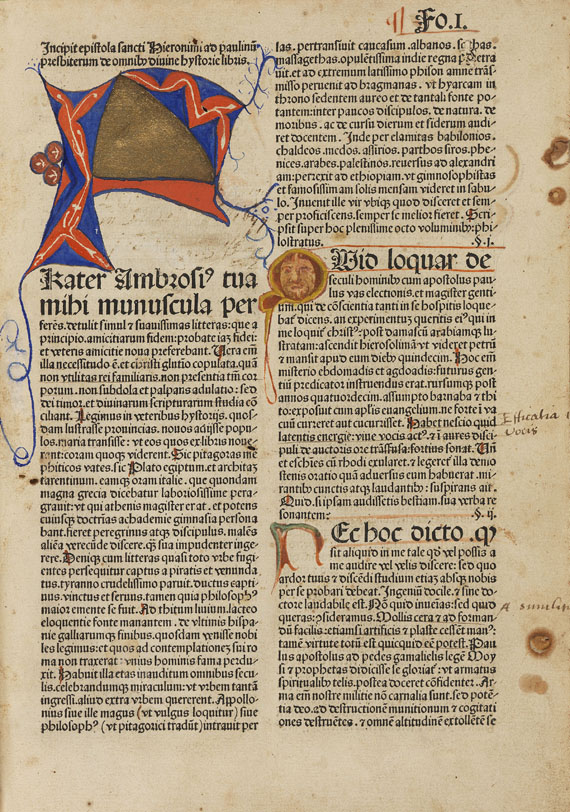 Fo.I.
Incipit epistola sancti Hieronimi ad paulinũ
presbiterum de omnibꝰ diuine hystorie libris.
Frater Ambrosiꝰ tua
mihi munuscula per
ferẽs. detulit simul ⁊ suauissimas litteras: que a
principio. amicitiarum fidem: probate iaꝫ fidei:
et veteris amicitie noua preferebant. Uera em̃
illa necessitudo ẽ. et christi glutino copulata. quã
non vtilitas rei familiaris. non presentia tm̃ cor
porum. non subdola et palpans adulatio: sed
dei timor. et diuinarum scripturarum studia cõ
ciliant. Legimus in veteribus hystorijs. quos-
dam lustrasse prouincias. nouos adijsse popu-
los. maria transisse: vt eos quos ex libris noue-
rant: coram quoqꝫ viderent. Sic pitagoras me
phiticos vates. sic Plato egiptum. et architaꝫ
tarentinum. eamqꝫ oram italie. que quondam
magna grecia dicebatur laboriosissime pera-
grauit: vt qui athenis magister erat. et potens
cuiusqꝫ doctrinas achademie gimnasia persona
bant. fieret peregrinus atqꝫ discipulus. malẽs
aliẽa verecũde discere. qꝫ sua impudenter inge-
rere. Deniqꝫ cum litteras quasi toto vrbe fugi
entes persequitur captus a piratis et venunda
tus. tyranno crudelissimo paruit. ductus capti-
uus. vinctus et seruus. tamen quia philosophꝰ
maior emente se fuit. Ad thitum liuium. lacteo
eloquentie fonte manantem. de vltimis hispa-
nie galliarumqꝫ finibus. quosdam venisse nobi
les legimus: et quos ad contemplationeꝫ sui ro
ma non traxerat: vnius hominis fama perdu-
xit. Habuit illa etas inauditum omnibus secu-
lis. celebrandumqꝫ miraculum: vt vrbem tantã
ingressi. aliud extra vrbem quererent. Appollo-
nius siue ille magus (vt vulgus loquitur) siue
philosophꝰ (vt pitagorici tradũt) intrauit per
las. pertransiuit caucasum. albanos. scithas.
massagethas. opulẽtissima indie regna penetra
uit. et ad extremum latissimo phison amne trãs-
misso peruenit ad bragmanas. vt hyarcam in
throno sedentem aureo et de tantali fonte po-
tantem: inter paucos discipulos. de natura. de
moribus. ac de cursu dierum et siderum audi-
ret docentem. Inde per elamitas babilonios.
chaldeos. medos. assirios. parthos siros. phe-
nices. arabes. palestinos. reuersus ad alexandri
am: perrexit ad ethiopiam. vt gimnosophistas
et famosissimam solis mensam videret in sabu-
lo. Inuenit ille vir vbiqꝫ quod disceret et sem-
per proficiscens. semper se melior fieret. Scri-
psit super hoc plenissime octo voluminibꝰ: phi
lostratus. .§.j.
Quid loquar de
seculi hominibꝰ cum apostolus pau-
lus vas electionis. et magister genti-
um. qui de cõscientia tanti in se hospitis loque-
bat̉ dicens. an experimentuꝫ queritis eiꝰ qui in
me loquit̉ christꝰ: post damascũ arabiamqꝫ lu-
stratam: ascendit hierosolimã vt videret petrũ
⁊ mansit apud eum diebꝰ quindecim. Hoc em̃
misterio ebdomadis et agdoadis: futurus gen
tiũ predicator instruendus erat. rursumqꝫ post
annos quatuordecim. assumpto barnaba ⁊ thi
to: exposuit cum apl̃is euangelium. ne forte ĩ va
cuũ curreret aut cucurisset. Habet nescio quid
latentis energie: viue vocis actꝰ ⁊ ĩ aures disci
puli de auctoris ore trãsfusa: fortius sonat. Un
et eschies cũ rhodi exularet. ⁊ legeret̉ illa demo
stenis oratio quã aduersus eum habuerat. mi-
rantibꝰ cunctis atqꝫ laudantibꝰ: suspirans ait.
Quid. si ipsam audissetis bestiam. sua verba re
sonantem: .§.ij.
Nec hoc dicto. qꝫ
sit aliquid in me tale qđ vel possis a
me audire vel velis discere: sed quo
ardor tuus ⁊ discẽdi studium etiaꝫ absqꝫ nobis
per se probari debeat. Ingeniũ docile. ⁊ sine do-
ctore laudabile est. Nõ quid inuenias: sed quid
queras: ꝯsideramus. Mollis cera ⁊ ad forman-
dũ facilis: etiamsi artificis ⁊ plaste cessẽt manꝰ:
tamẽ virtute totũ est quicquid eẽ potest. Pau
lus apostolus ad pedes gamalielis legẽ Moy
si ⁊ prophetas didicisse se gloriat̉: vt armatus
spiritualibꝰ telis. postea doceret cõfidenter. Ar
ma em̃ nostre militie nõ carnalia sunt. sed potẽ
tia deo. ad destructionẽ munitionum ⁊ cogitati
ones destruẽtes. ⁊ omnẽ altitudinẽ extollẽtẽ se
Efficatia
vocis
A simili